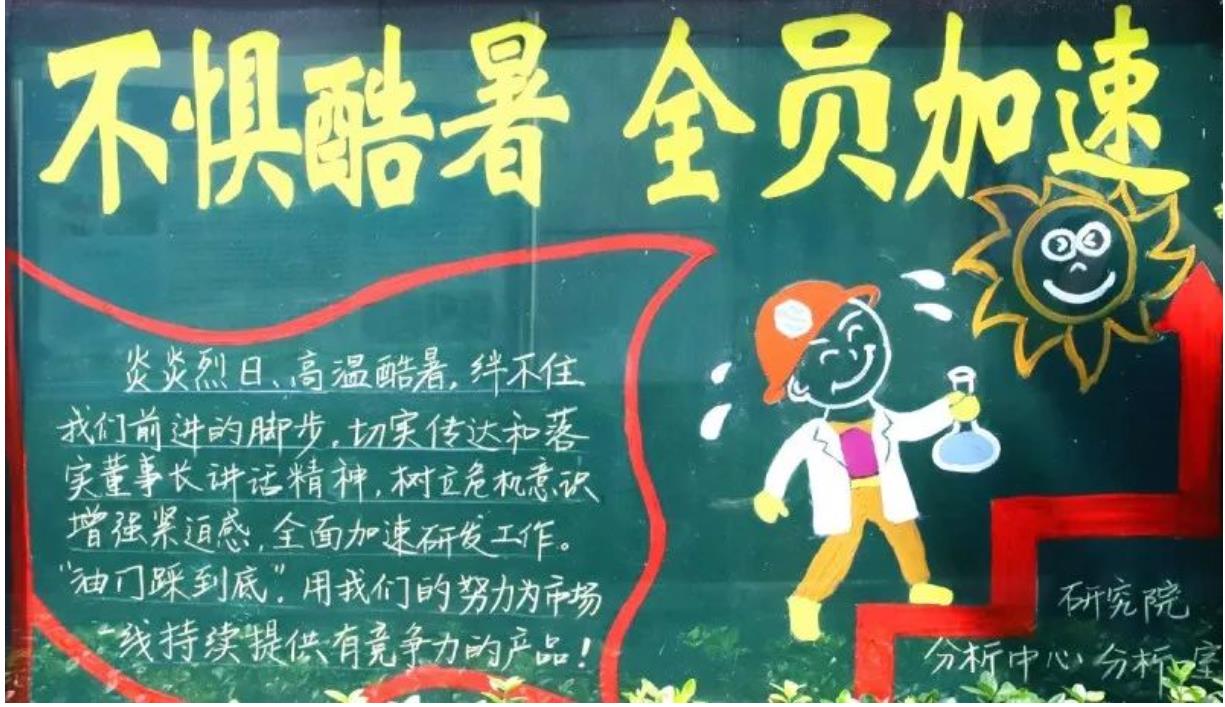 不惧酷暑 全员加速
炎炎烈日、高温酷暑,绊不住
我们前进的脚步,切实传达和落
实董事长讲话精神,树立危机意识
增强紧迫感,全面加速研发工作。
“油门踩到底”。用我们的努力为市场
一线持续提供有竞争力的产品!
研究院
分析中心 分析室